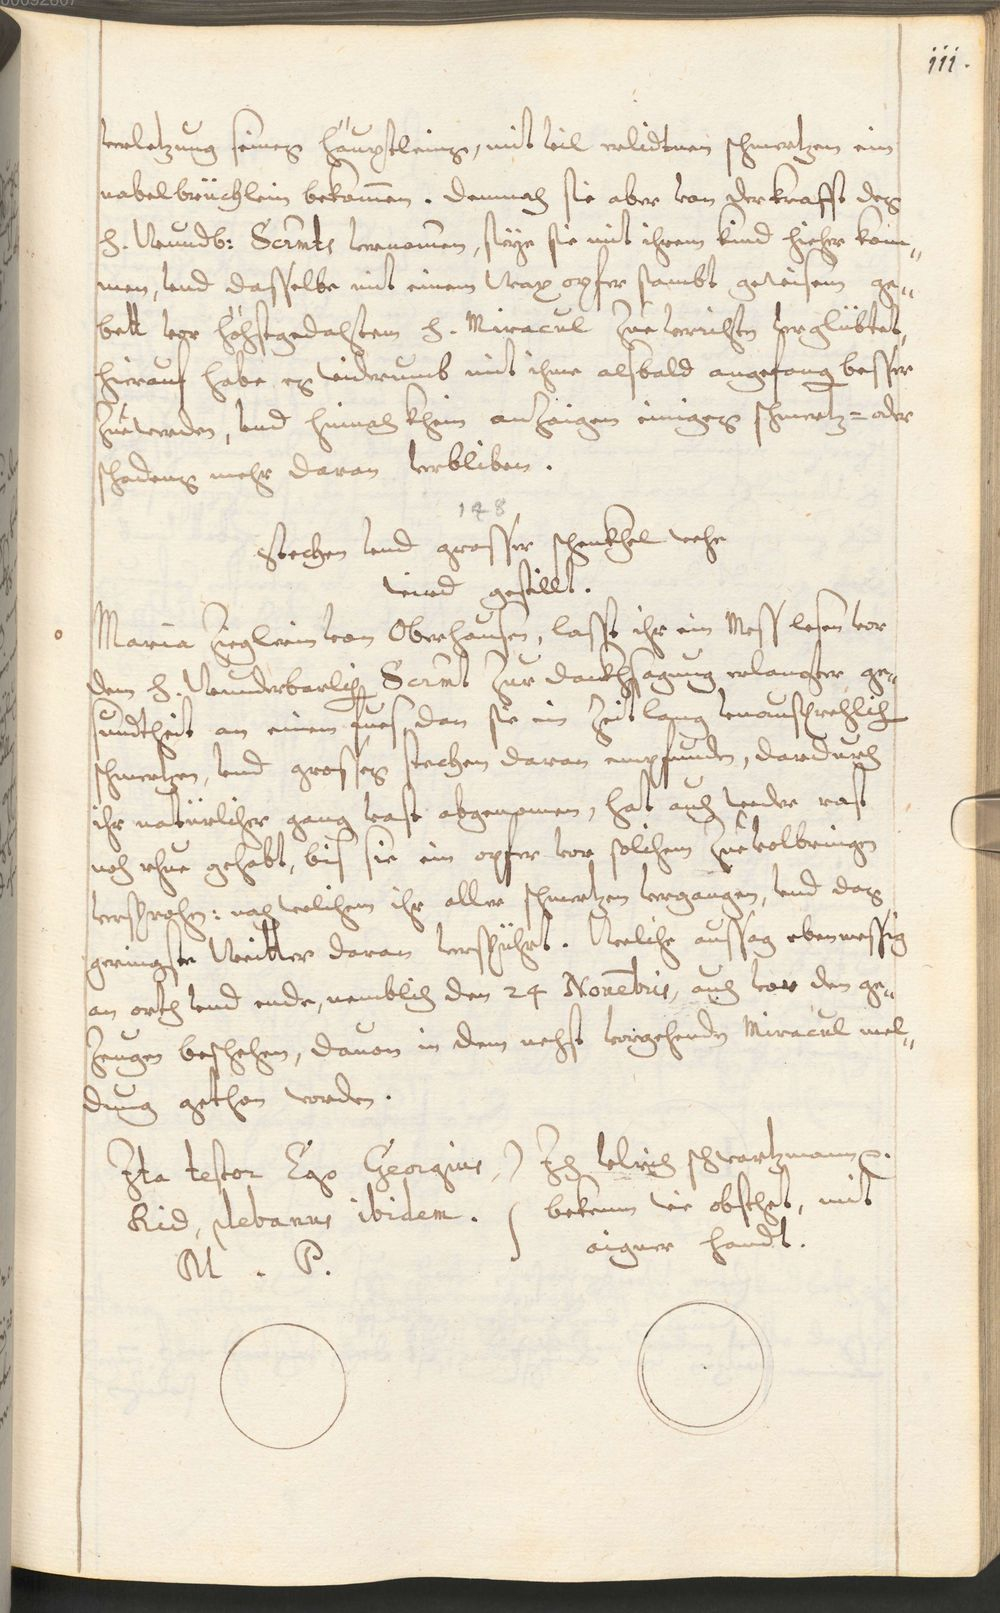 iii.
verletzung seines häuptleins, mit vil erlidtnen schmertzen ein
nabelbrüchlein bekom̄en. demnach sie aber von der krafft des
h. Wundb: Scrmts vernomen, seye sie mit ihrem kind hieher kom„
men, vnd dasselbe mit einem Wax opfer sambt gewisem ge„
bett vor höchstgedachtem h. Miracul zue verrichten verglübtet,
hierauf habe es widerumb mit ihme alsbald angefang besser
zue werden, vnd hinnach khein anzaigen einiges schmertz= oder
schadens mehr daran verbliben.
148
Stechen vnd grosser schenkhel wehe
wird gestillt.
Maria Zieglerin von Oberhausen, lasst ihr ein Mess lesen vor
dem h. Wunderbarlich Scrmt zur dankhsagung erlangter ge„
sundtheit an einem fues, dan sie ein Zeitlang vnaussprechlich
schmertzen, vnd grosses stechen daran empfunden, dardurch
ihr natürlicher gang vast abgenomen, hat auch weder rast
noch rhue gehabt, bis sie ein opfer vor solichem zue volbringen
versprochen: nach welichem ihr aller schmertzen vergangen, vnd das
geringste Weitter daran verspührt. Weliche aussag ebenmessig
an orth vnd ende, nemblich den 24 Novēbris, auch vor den ge„
zeugen beschehen, davon in dem nechst vorgehenden Miracul mel„
dung gethon worden.
Ita testor Ego Georgius
Kid, plebanus ibidem.
M. P.
Ich Ulrich schwartzmann
bekenn wie obsthet, mit
aigner handt.